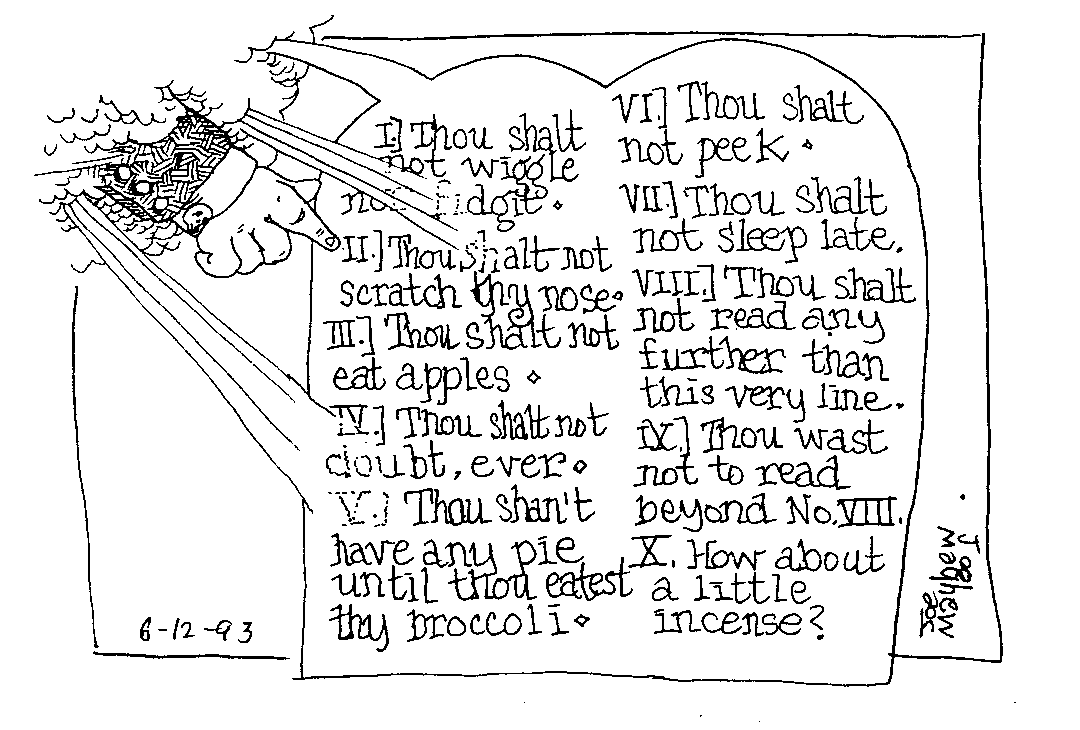 I.] Thou shalt
not wiggle
nor fidgit.
II.] Thou shalt not
scratch thy nose.
III.] Thou shalt not
eat apples.
IV.] Thou shalt not
doubt, ever.
V.] Thou shan't
have any pie
until thou eatest
thy broccoli.
VI.] Thou shalt
not peek.
VII.] Thou shalt
not sleep late.
VIII.] Thou shalt
not read any
further than
this very line.
IX.] Thou wast
not to read
beyond No. VIII.
X. How about
a little
incense?
6-12-93
Joe
Mayhew